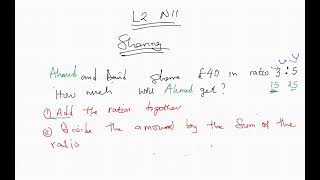 L2 N11
Sharing
Ahmed and Said share £40 in ratio 3 : 5
How much will Ahmed get? 15 25
① Add the ratios together
② Divide the amount by the sum of the
ratio